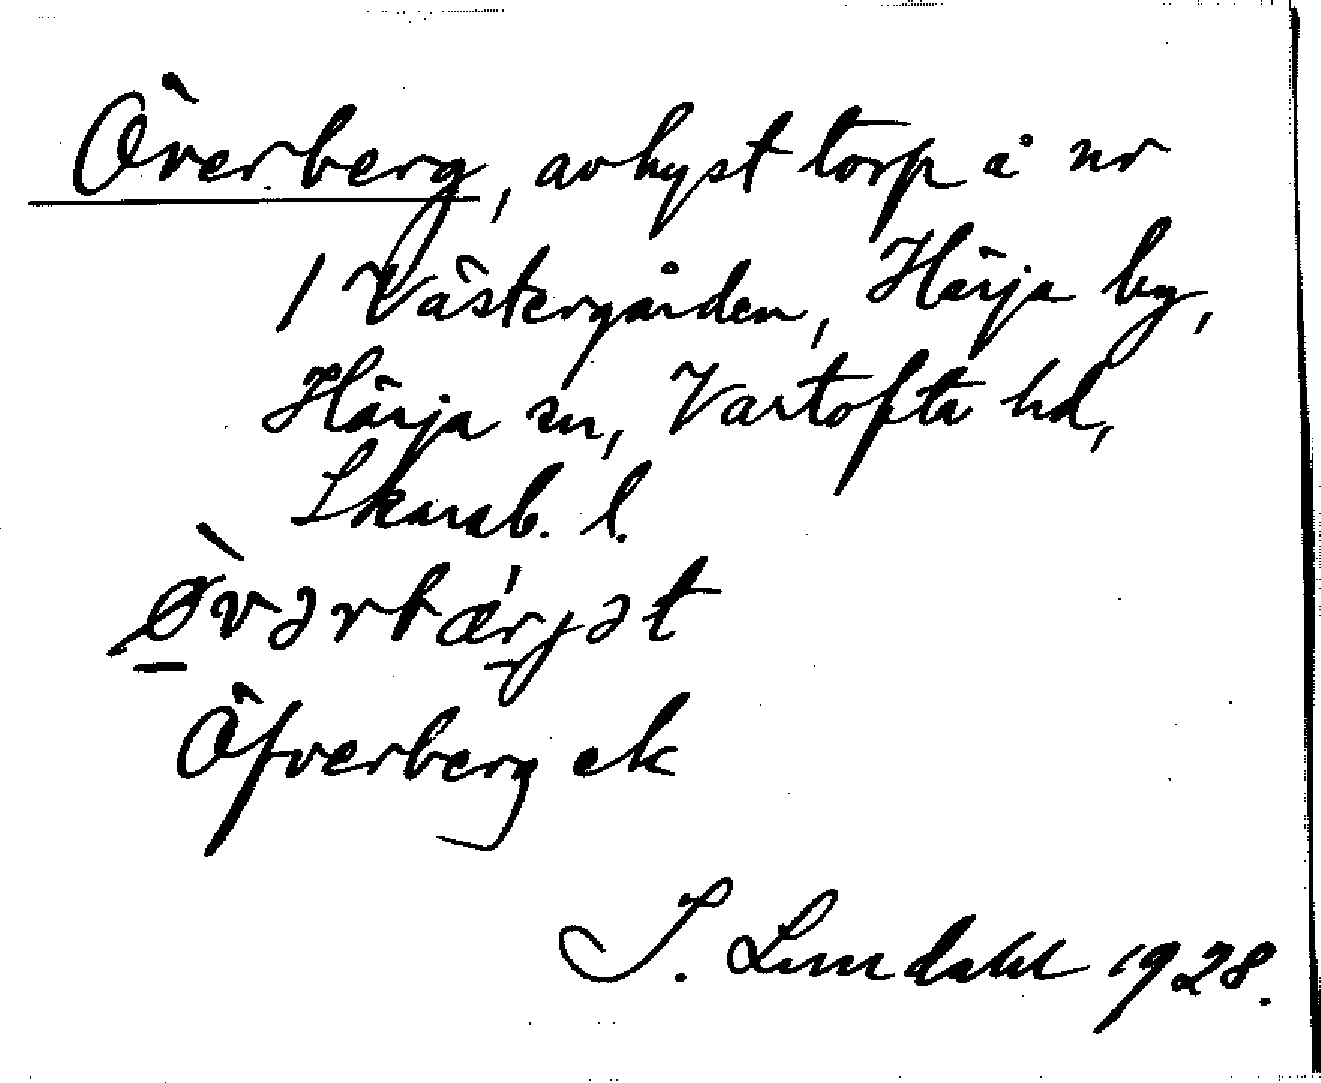 Överberg, avhyst torp å nr
1 Västergården, Härja by,
Härja sn, Vartofta hd,
Skarab. l.
Øvərbærjət
Öfverberg ek
S. Lindahl 1928.